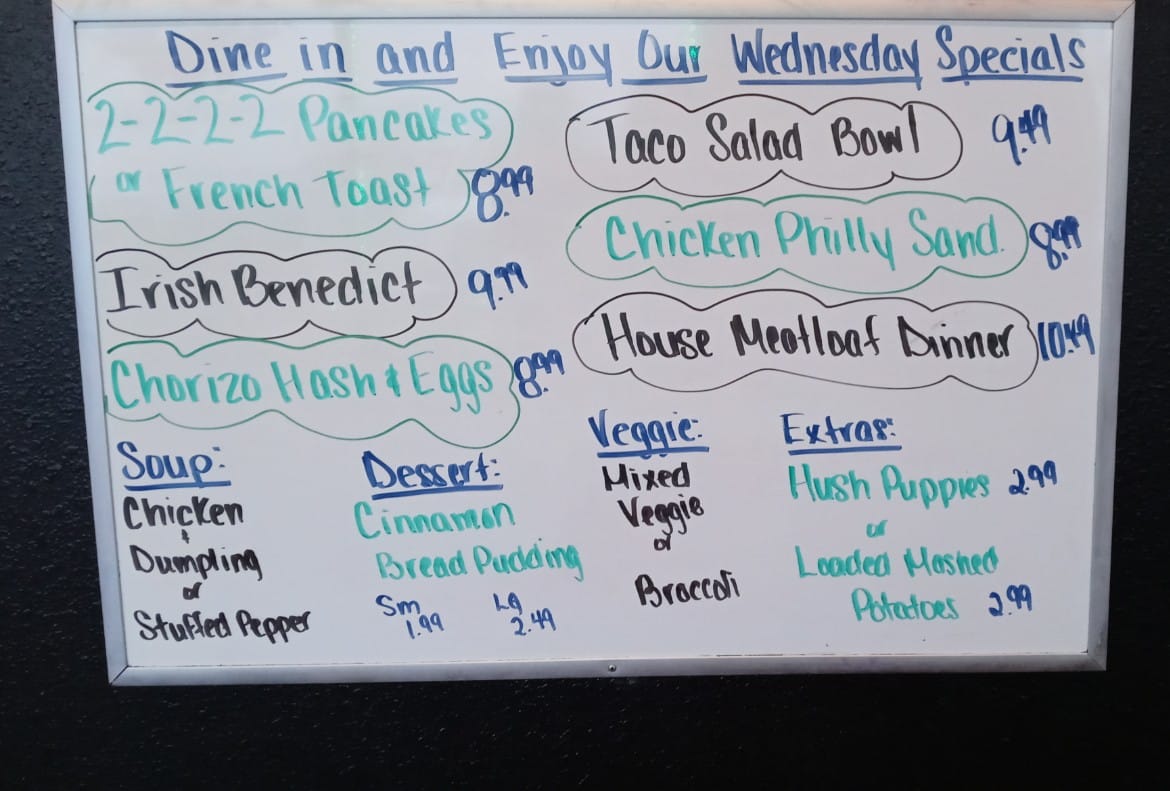 Dine in and Enjoy Our Wednesday Specials
2-2-2-2 Pancakes
or French Toast 8.99
Irish Benedict 9.99
Chorizo Hash & Eggs 8.99
Taco Salad Bowl 9.49
Chicken Philly Sand. 8.99
House Meatloaf Dinner 10.49
Soup:
Chicken
&
Dumpling
or
Stuffed Pepper
Dessert:
Cinnamon
Bread Pudding
Sm Lg
1.99 2.49
Veggie:
Mixed
Veggie
or
Broccoli
Extras:
Hush Puppies 2.99
or
Loaded Mashed
Potatoes 2.99